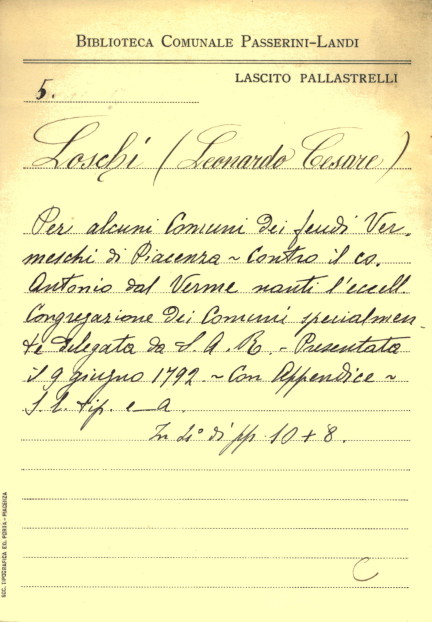 BIBLIOTECA COMUNALE PASSERINI-LANDI
LASCITO PALLASTRELLI
5.
Loschi (Leonardo Cesare)
Per alcuni Comuni dei feudi Ver-
meschi di Piacenza ~ Contro il co.
Antonio dal Verme nanti l'eccell.
Congregazione dei Comuni specialmen-
te delegata da S. A. R. - Presentata
il 9 giugno 1792. ~ Con Appendice ~
S. l. tip. e a.
In 4° di pp. 10 + 8.
C
SOC. TIPOGRAFICA ED. PORTA - PIACENZA